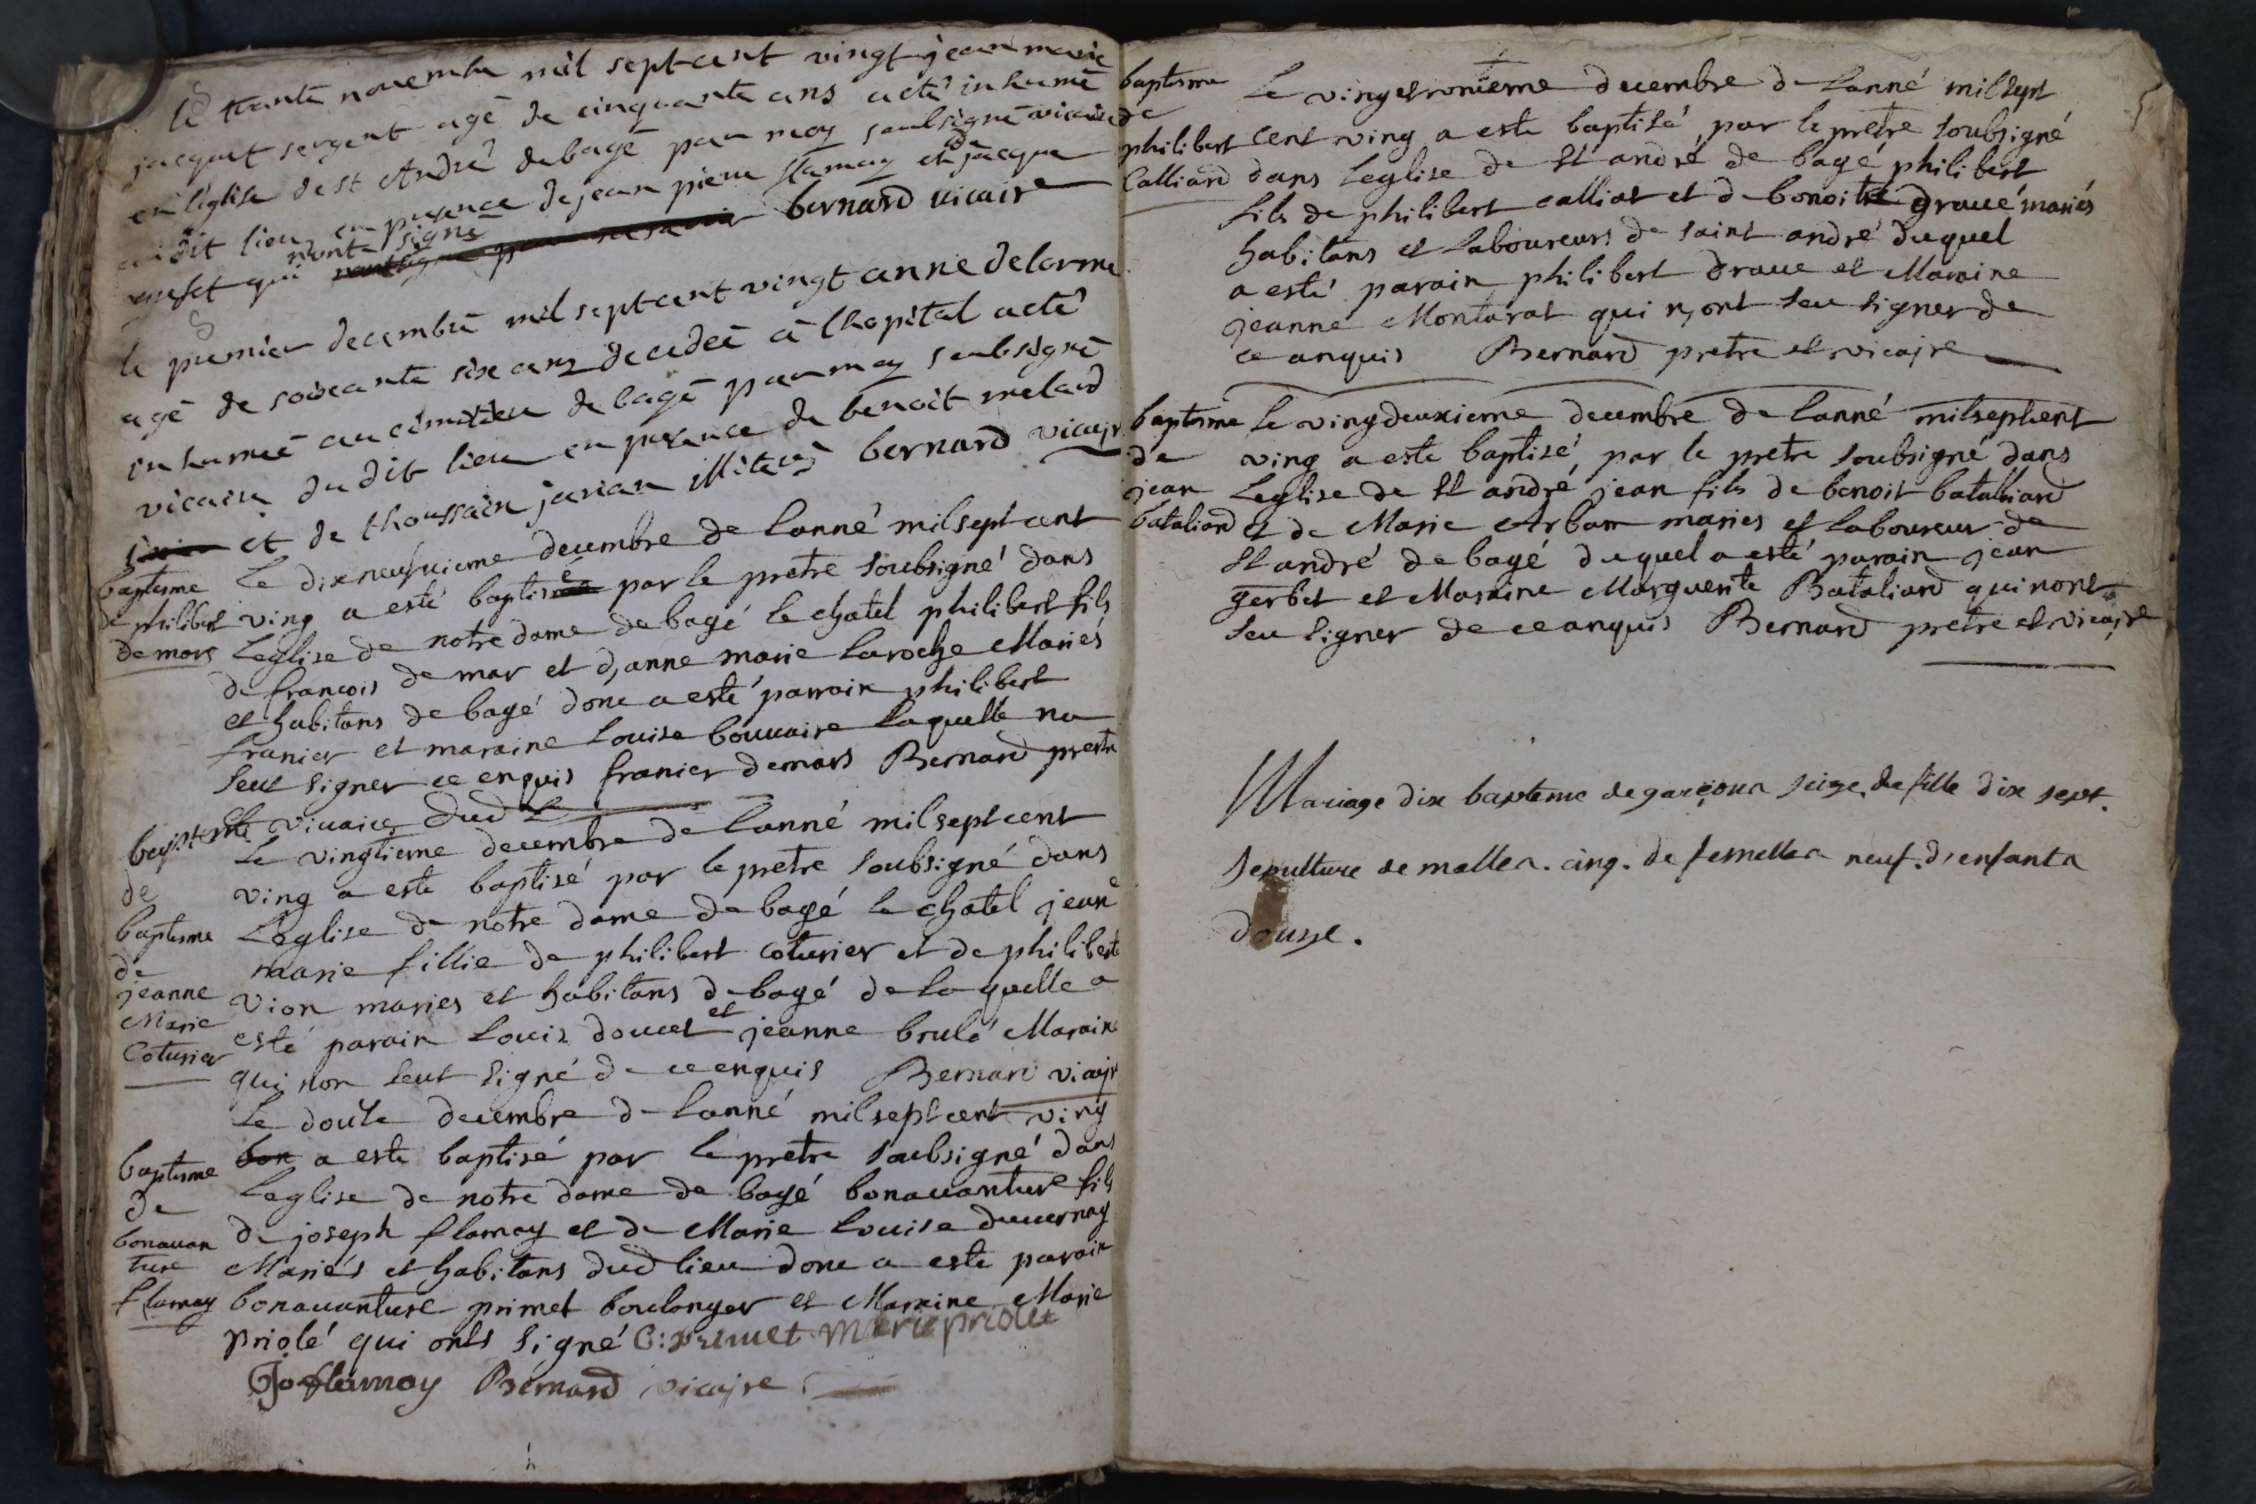 S
le trante novembre mil sept cent vingt jean marie
jacquet sergent agé de cinquante ans a eté inhumé
en léglise de st André de bagé par moy soubsigné vicaire
dudit lieu en presence de jean pierre flamay et de jacque
qui nont signé bernard vicaire
S
le premier decembre mil sept cent vingt anne delorme
agé de soixante six ans decedeé a lhopital a eté
inhumeé au cimitiere de bagé par moy soubsigné
vicaire du dit lieu en presence de benoit melard
et de thoussain jarian illiteres bernard vicaire
baptesme
de philibert
de mars
Le dixneufvieme decembre de lanné mil sept cent
ving a esté baptisé par le pretre soubsigné dans
Leglise de notre dame de bagé le chatel philibert fils
de francois de mar et d,anne marie laroche Mariés
et habitans de bagé donc a esté parrain philibert
franier et maraine Louise bouvaire laquelle na
seut signer ce enquis franier demars Bernard prestre
et vicaire dud L
baptesme
de
baptesme
de
jeanne
Marie
Coturier
Le vingtieme decembre de lanné mil sept cent
ving a este baptisé par le pretre soubsigné dans
Leglise de notre dame de bagé le chatel jeane
marie fillie de philibert coturier et de philiberte
vion maries et habitans de bagé de laquelle a
esté parain Louis doucet et jeanne brulé Maraine
qui non seut signé de ce enquis Bernard vicajre
baptesme
de
bonavan
ture
flamay
Le douse decembre de lanné mil sept cent ving
bon a este baptisé par le pretre soubsigné dans
Leglise de notre dame de bagé bonavanture fils
de joseph flamay et de Marie Louise duvernay
Mariés et habitans dud lieu donc a este parain
bonavanture primet boulanger et Maraine Marie
priolé qui onts signé B: primet Marie priolet
Jo flamay Bernard vicajre
baptesme
de
philibert
Calliard
Le vingetroniéme decembre de lanné mil sept
cent ving a este baptisé par le pretre soubsigné
dans Leglise de st andré de bagé philibert
fils de philibert calliat et de benoitte grave mariés
habitans et laboureurs de saint andré duquel
a esté parain philibert Drave et Maraine
jeanne Montarat qui n,ont seu signer de
ce anquis Bernard pretre et vicajre
baptesme
de
jean
bataliard
Le vingdeuxieme decembre de lanné mil sept cent
ving a este baptisé par le pretre soubsigné dans
Leglise de st andré jean fils de benoit bataliard
et de Marie Arban maries et laboureur de
st andré de bagé duquel a esté parain jean
gerbet et Maraine Marguerite Bataliard qui nont
seu signer de ce anquis Bernard pretre et vicajre
Mariage dix bapteme de garçons seize, de fille dix sept.
Sepulture de malles. cinq. de femelles neuf. d'enfants
dousse.